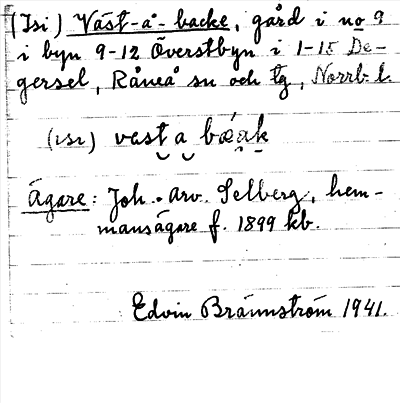 (Isi) Väst-å-backe, gård i no 9
i byn 9-12 Överstbyn i 1-15 De-
gersel, Råneå sn och tg, Norrb. l.
(ɪsɪ) vast a bæak
Ägare: Joh. Arv. Selberg, hem-
mansägare f. 1899 kb.
Edvin Brännström 1941.